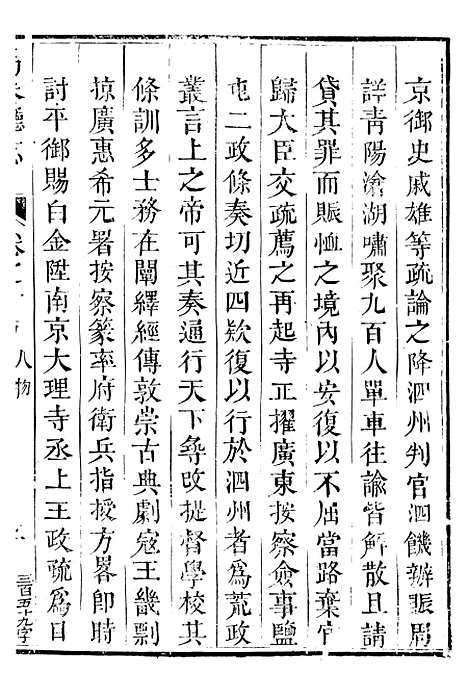 京御史戚雄等疏論之降泗州判官泗饑辦賑周
詳靑陽滄湖嘯聚九百人單車徃諭皆解散且請
貸其罪而賑恤之境內以安復以不屈當路棄官
歸大臣交疏薦之再起寺正擢廣東按察僉事鹽
屯二政條奏切近四欵復以行於泗州者爲荒政
叢言上之帝可其奏通行天下尋改提督學校其
條訓多士務在闡繹經傳敦崇古典劇寇王畿剽
掠廣惠希元署按察篆率府衛兵指授方畧卽時
討平御賜白金陞南京大理寺丞上王政疏爲目
人物
三百五十九字